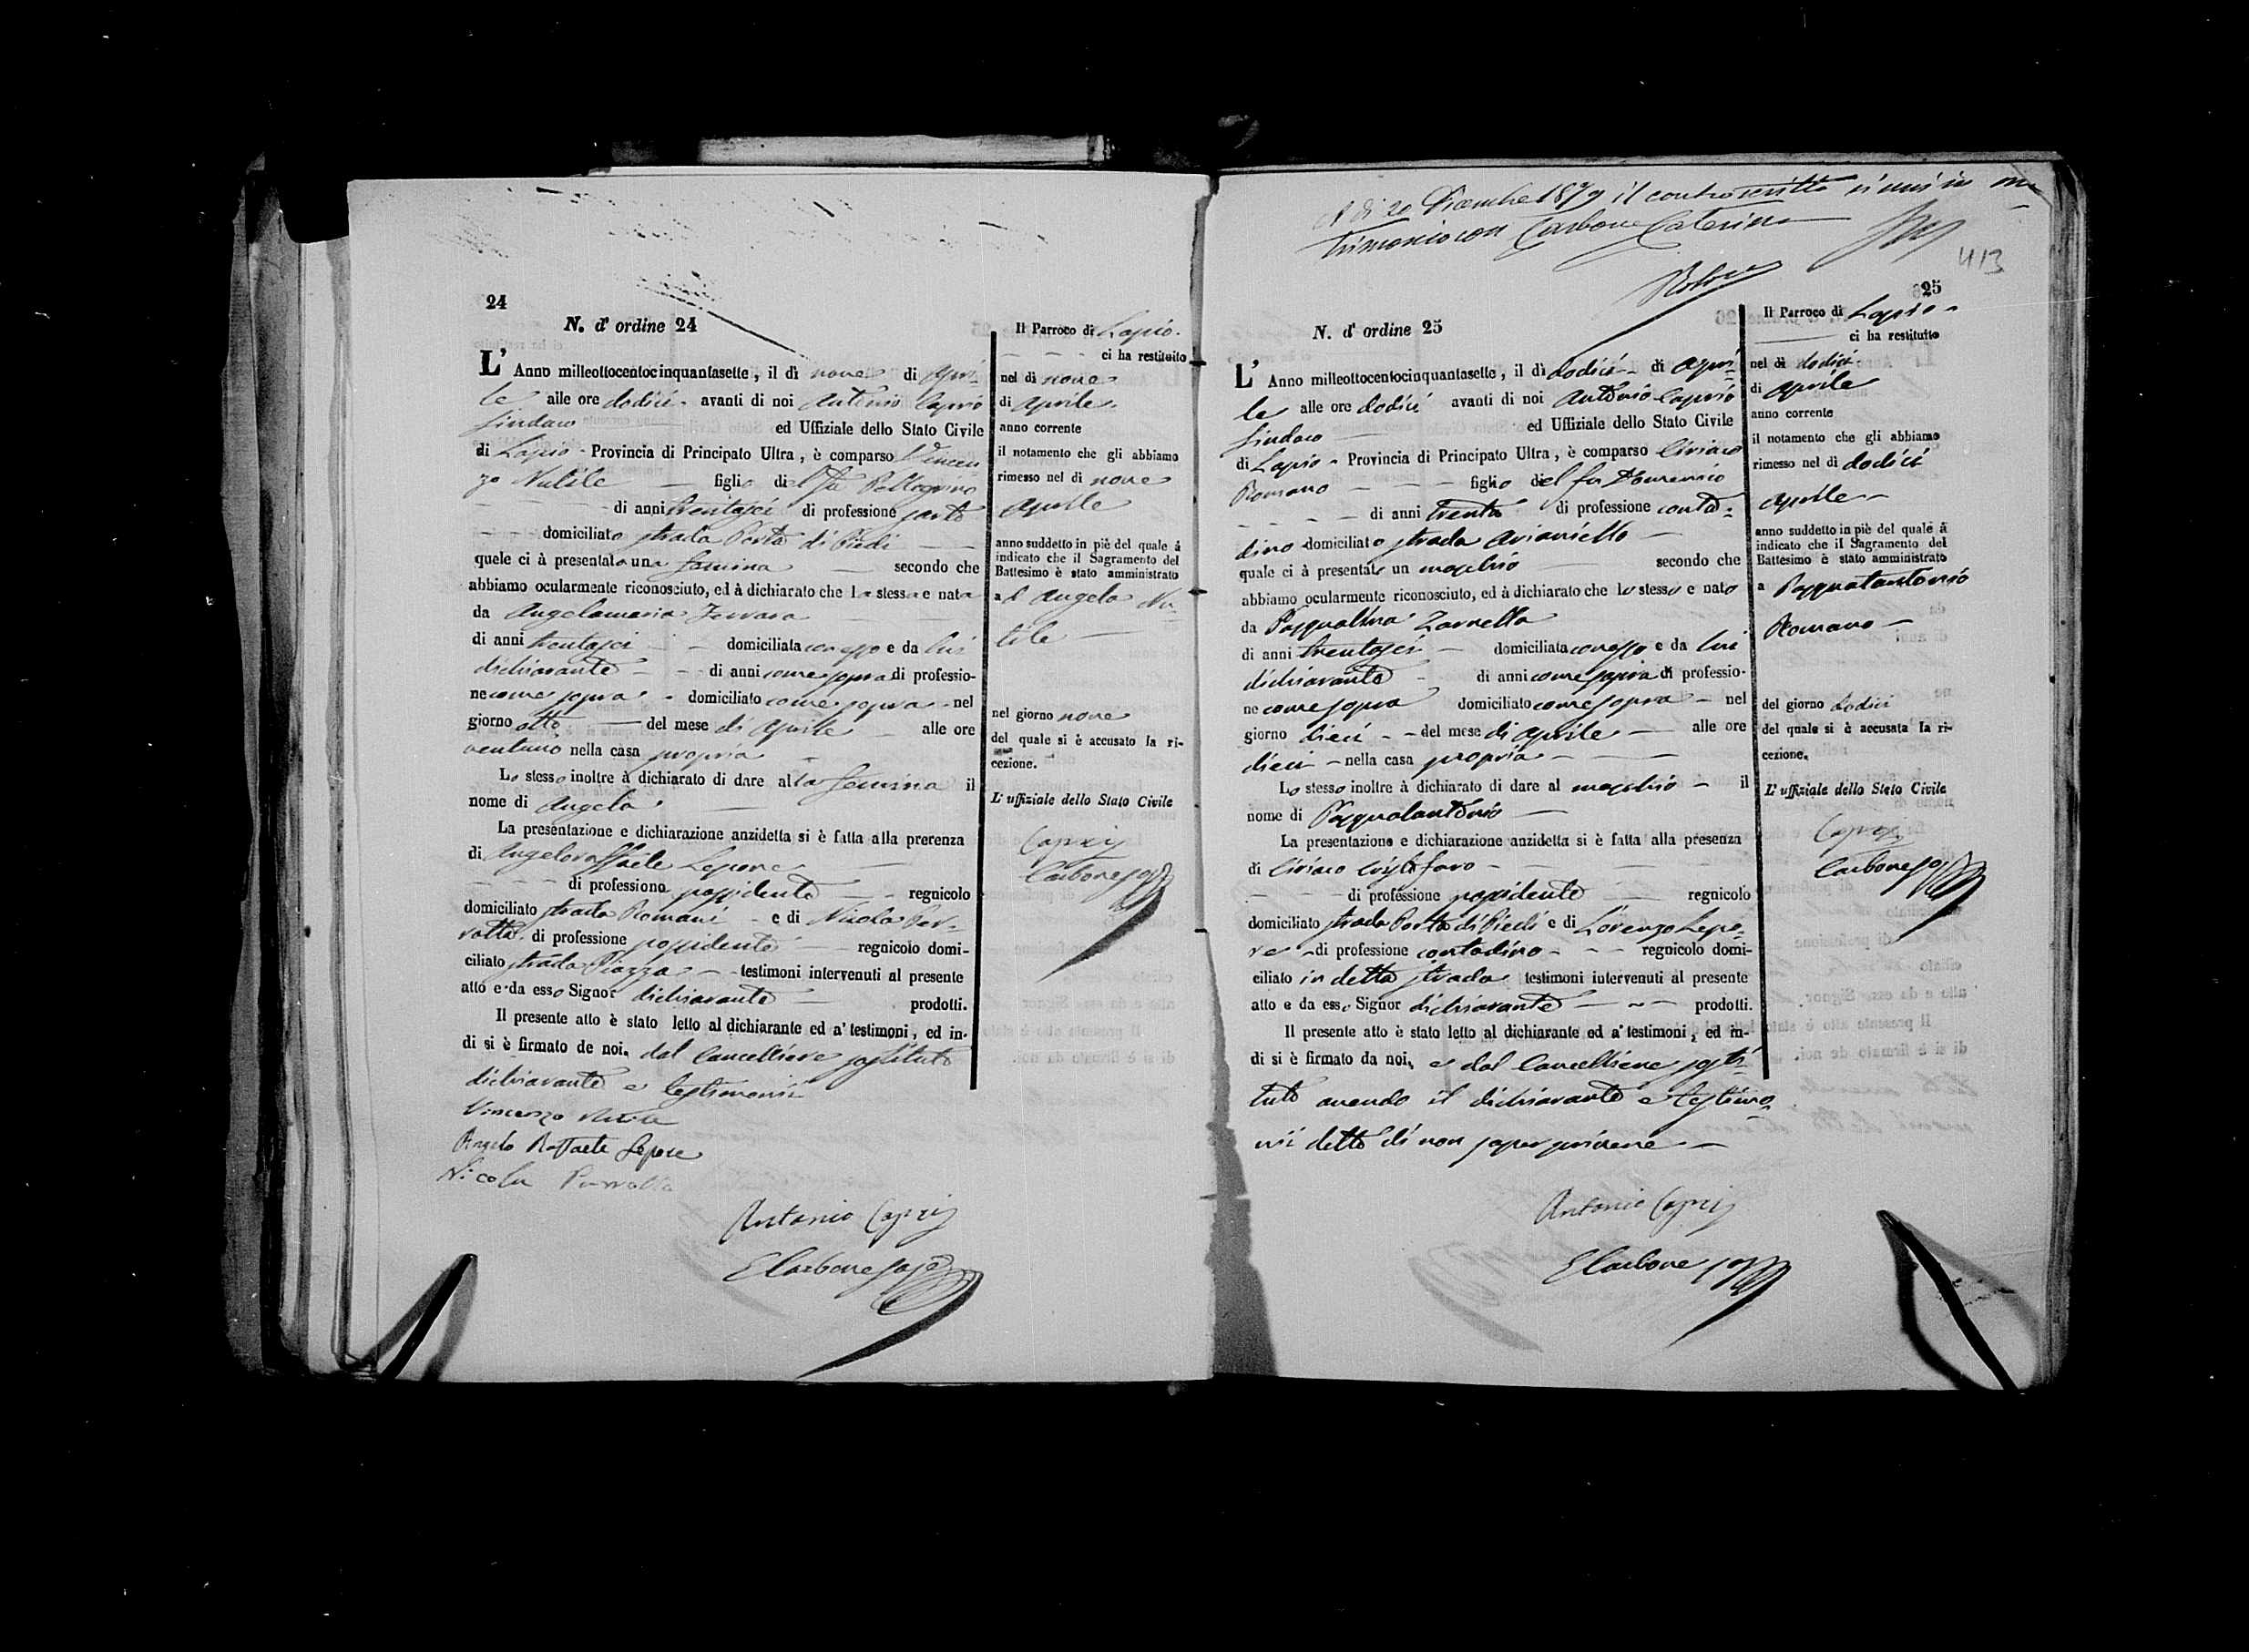 24
N. d' ordine 24
L' Anno millottocentocinquantasette, il dì nove di Apri-
le alle ore dodici avanti di noi Antonio Caprio
Sindaco ed Uffiziale dello Stato Civile
di Lapio Provincia di Principato Ultra, è comparso Vincen
zo Nutile figlio del fu Pellegrino
di anni trentasei di professione sarto
domiciliato strada Porta di Piedi
quale ci à presentato una femina secondo che
abbiamo ocularmente riconosciuto, ed à dichiarato che la stessa e nata
da Angelamaria Ferrara
di anni trentasei domiciliata con esso e da lui
dichiarante di anni come sopra di professio-
ne come sopra domiciliato come sopra nel
giorno otto del mese di Aprile alle ore
ventuno nella casa propria
Lo stesso inoltre à dichiarato di dare alla femina il
nome di Angela
La presentazione e dichiarazione anzidetta si è fatta alla prerenza
di Angeloraffaele Lepore
di professione possidente regnicolo
domiciliato strada Romani e di Nicola Per-
rotta di professione possidente regnicolo domi-
ciliato strada Piazza testimoni intervenuti al presente
atto e da esso Signor dichiarante prodotti.
Il presente atto è stato letto al dichiarante ed a' testimoni, ed in-
di si è firmato de noi, dal Cancelliere sostituto
dichiarante e testimonii
Vincenzo Nutile
Angelo Raffaele Lepore
Nicola Perrotta
Antonio Caprio
E Carbone
Il Parroco di Lapio
ci ha restituito
nel dì nove
di Aprile
anno corrente
il notamento che gli abbiamo
rimesso nel di nove
Aprile
anno suddetto in piè del quale á
indicato che il Sagramento del
Battesimo è stato amministrato
ad Angela Nu-
tile
nel giorno nove
del quale si è accusato la ri-
cezione.
L' uffiziale dello Stato Civile
Caprio
Carbone
A dì 20 Dicembre 1879 il controscritto si unì in ma
trimonio con Carbone Caterina
413
25
N. d' ordine 25
L' Anno milleottocentocinquantasette, il dì dodici di Apri-
le alle ore dodici avanti di noi Antonio Caprio
Sindaco ed Uffiziale dello Stato Civile
di Lapio Provincia di Principato Ultra, è comparso Ciriaco
Romano figlio del fu Domenico
di anni trenta di professione conta-
dino domiciliato strada Arianiello
quale ci à presentato un maschio secondo che
abbiamo ocularmente riconosciuto, ed à dichiarato che lo stesso e nato
da Pasqualina Zarrella
di anni trentasei domiciliata con esso e da lui
dichiarante di anni come sopra di professio-
ne come sopra domiciliato come sopra nel
giorno dieci del mese di Aprile alle ore
dieci nella casa propria
Lo stesso inoltre à dichiarato di dare al maschio il
nome di Pasqualantonio
La presentazione e dichiarazione anzidetta si è fatta alla presenza
di Ciriaco Cristofaro
di professione possidente regnicolo
domiciliato strada Porta di Piedi e di Lorenzo Lepo-
re di professione contadino regnicolo domi-
ciliato in detta strada testimoni intervenuti al presente
atto e da esso Signor dichiarante prodotti.
Il presente atto è stato letto al dichiarante ed a' testimoni, ed in-
di si è firmato da noi, e dal Cancelliere sosti-
tuto avendo il dichiarante e testimo-
nii detto di non saper scrivere
Antonio Caprio
E Carbone
Il Parroco di Lapio
ci ha restituito
nel di dodici
di Aprile
anno corrente
il notamento che gli abbiamo
rimesso nel di dodici
Aprile
anno suddetto in piè del quale á
indicato che il Sagramento del
Battesimo è stato amministrato
a Pasqualantonio
Romano
del giorno dodici
del quale si è accusata la ri-
cezione.
L' uffiziale dello Stato Civile
Caprio
Carbone